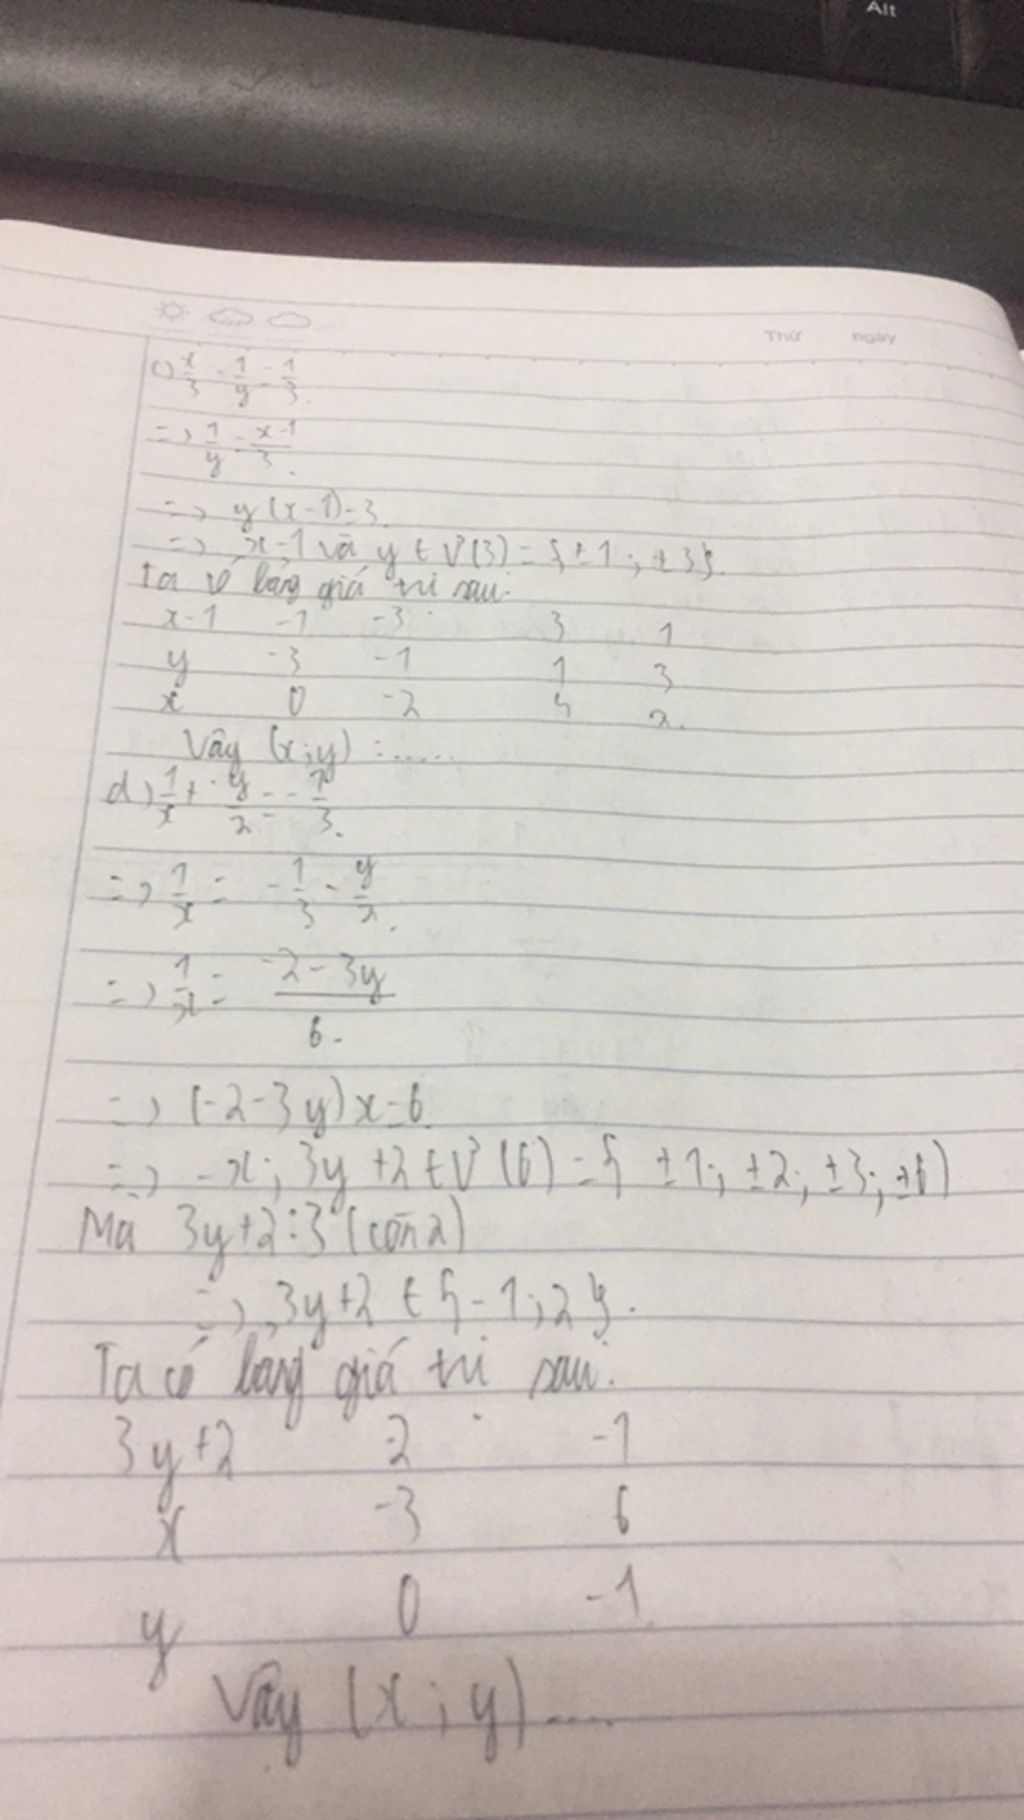 Alt
Thứ ngày
c) x/3 - 1/y = 1/3.
=> 1/y = x-1/3.
=> y(x-1)=3.
=> x-1 và y ∈ Ư(3) = {±1; ±3}.
Ta có bảng giá trị sau:
x-1 -1 -3 3 1
y -3 -1 1 3
x 0 -2 4 2.
Vậy (x;y) :.....
d) 1/x + y/2 = -1/3.
=> 1/x = -1/3 - y/2.
=> 1/x = -2-3y/6.
=> (-2-3y)x=6.
=> -x; 3y+2 ∈ Ư(6) = { ±1; ±2; ±3; ±6}
Mà 3y+2:3 (còn 2)
=> 3y+2 ∈ {-1;2}.
Ta có bảng giá trị sau:
3y+2 2 -1
x -3 6
y 0 -1.
Vậy (x;y)....